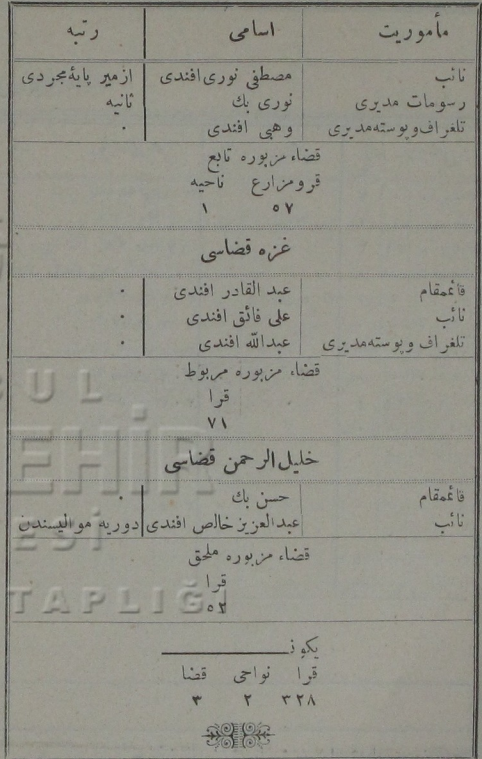 مأموریت اسامی رتبه
نائب مصطفی نوری افندی ازمیر پایۀ مجردی
رسومات مدیری نوری بك ثانیه
تلغراف وپوسته مدیری وهبی افندی ٠
قضاء مزبوره تابع
قرومزارع ناحیه
٥٧ ١
غزه قضاسی
قائممقام عبد القادر افندی ٠
نائب علی فائق افندی ٠
تلغراف وپوسته مدیری عبدالله افندی ٠
قضاء مزبوره مربوط
قرا
٧١
خلیل الرحمن قضاسی
قائممقام حسن بك ٠
نائب عبدالعزیز خالص افندی دوریه موالیسندن
قضاء مزبوره ملحق
قرا
٥٢
یكون
قرا نواحی قضا
٣٢٨ ٢ ٣